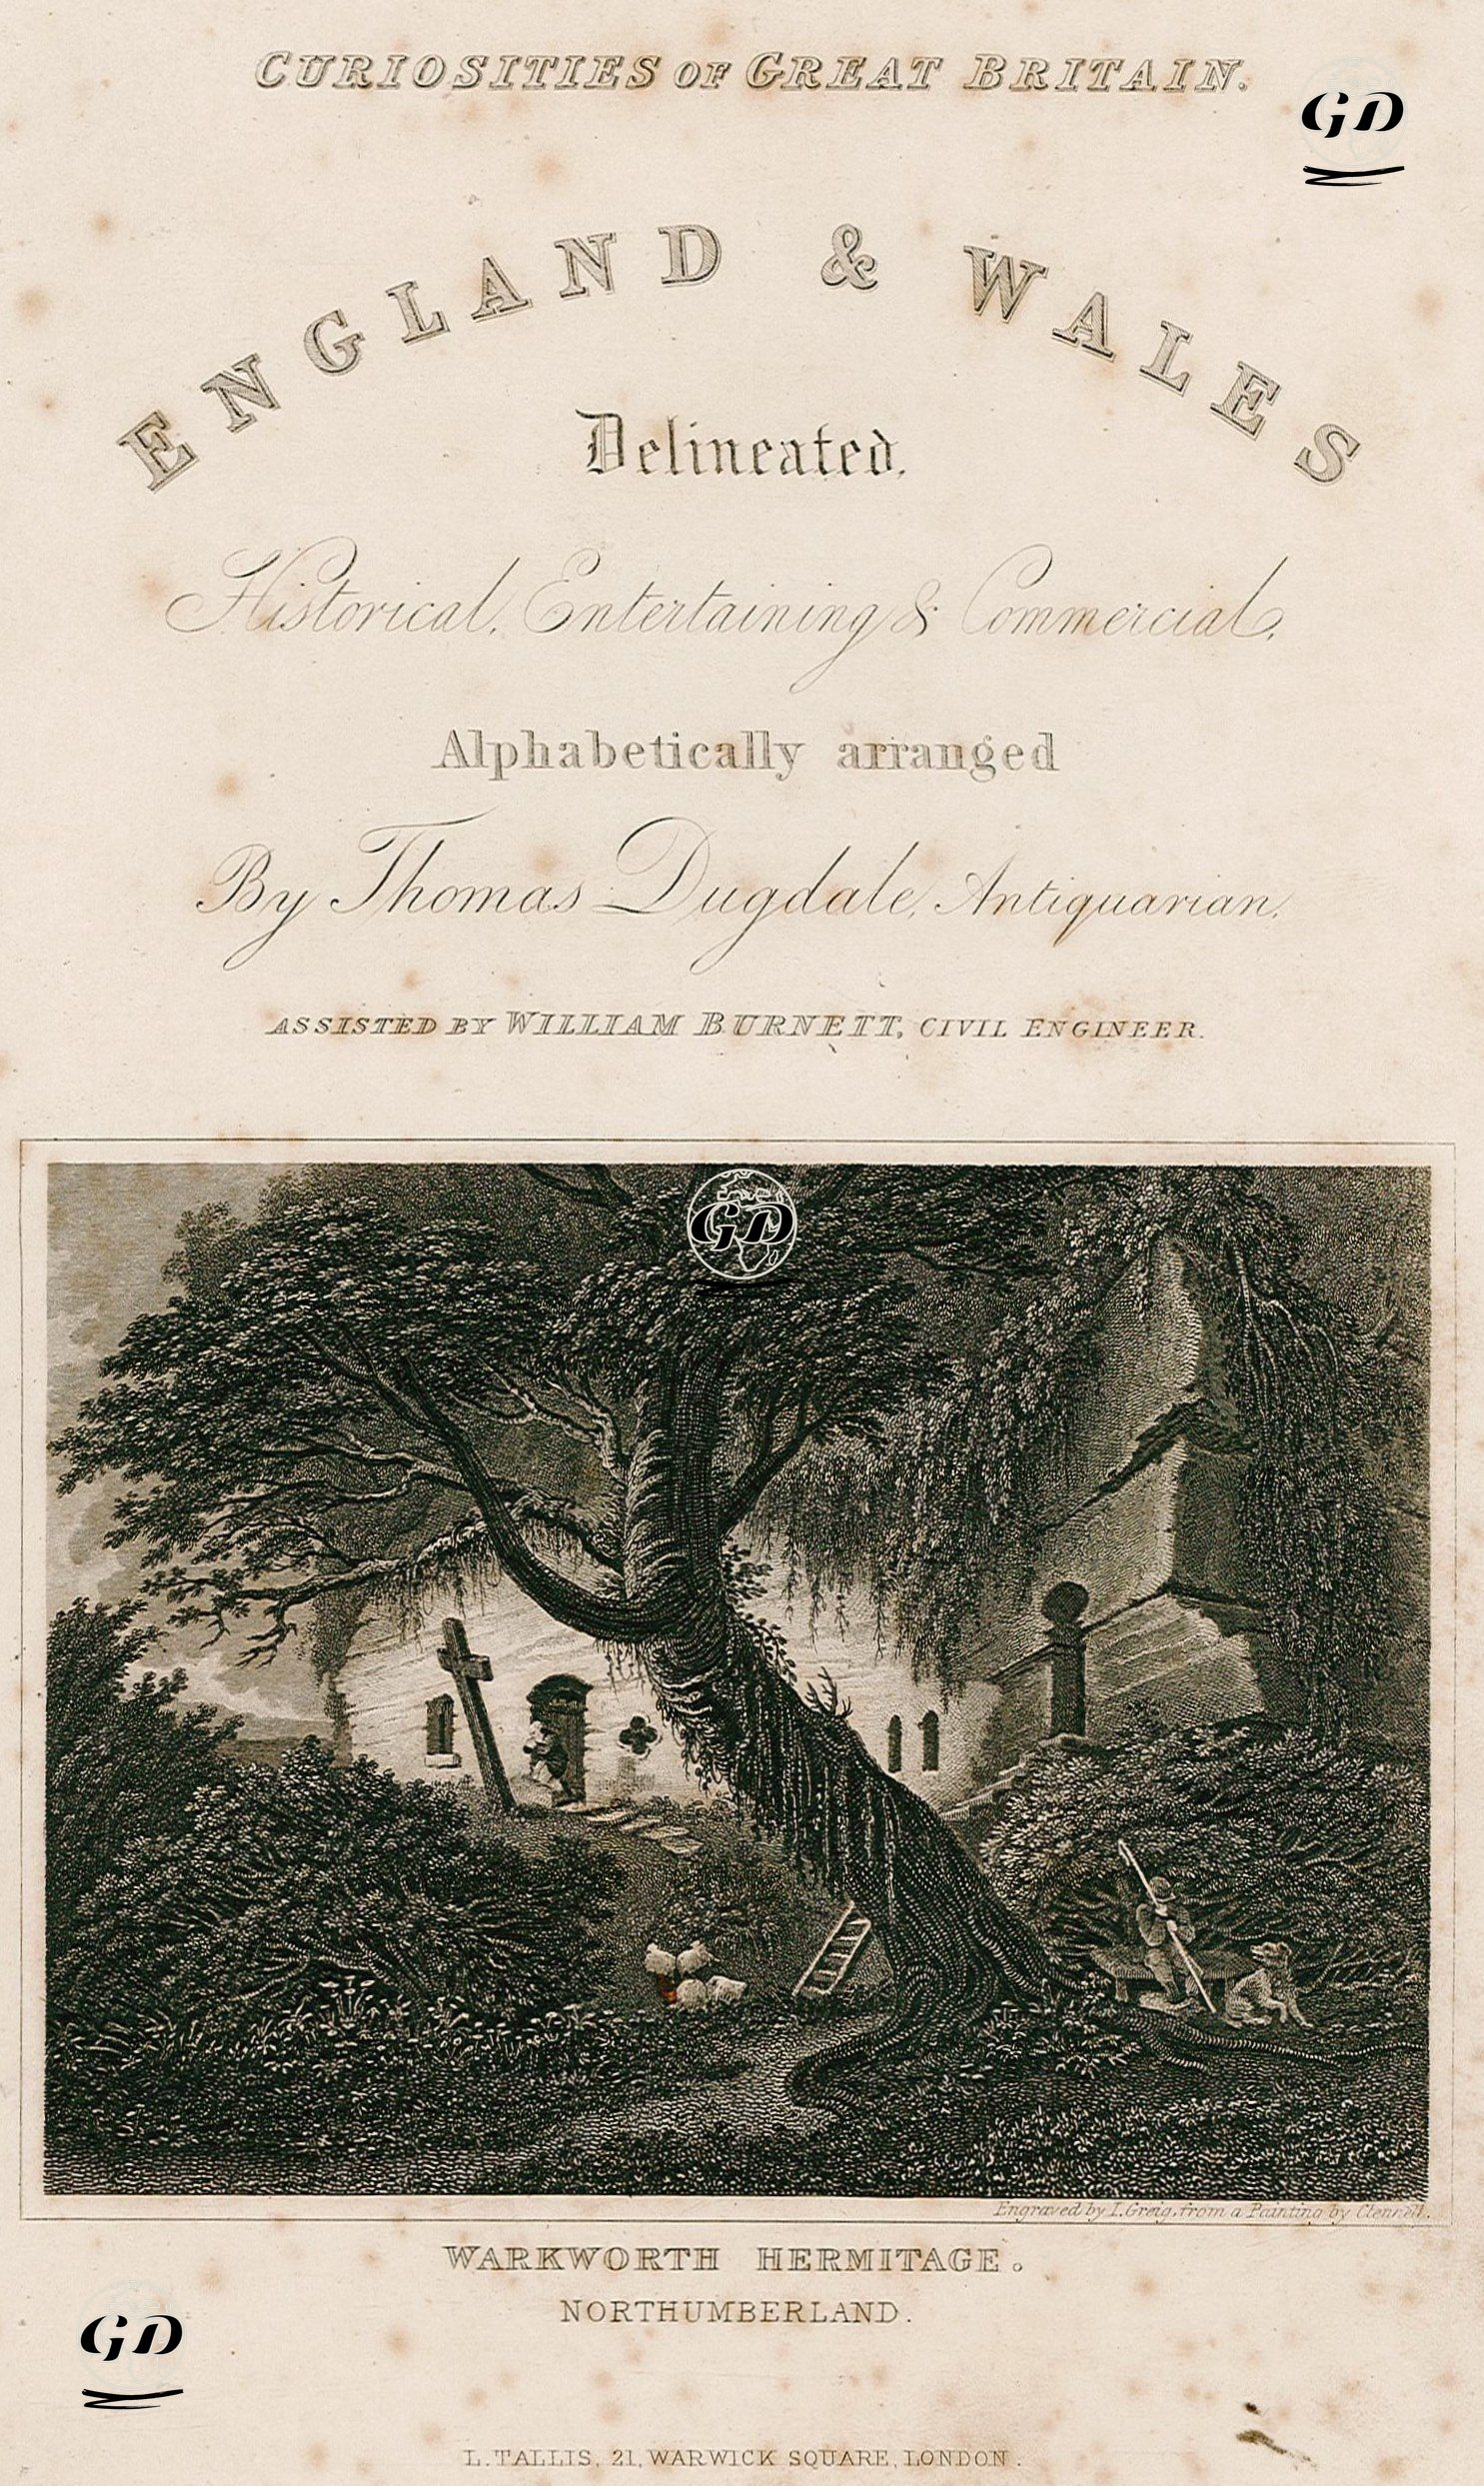 CURIOSITIES OF GREAT BRITAIN.
GD
ENGLAND & WALES
Delineated,
Historical, Entertaining & Commercial,
Alphabetically arranged
By Thomas Dugdale, Antiquarian,
ASSISTED BY WILLIAM BURNETT, CIVIL ENGINEER.
GD
Engraved by I. Greig, from a Painting by Clennell.
WARKWORTH HERMITAGE.
NORTHUMBERLAND.
GD
L. TALLIS, 21, WARWICK SQUARE, LONDON.